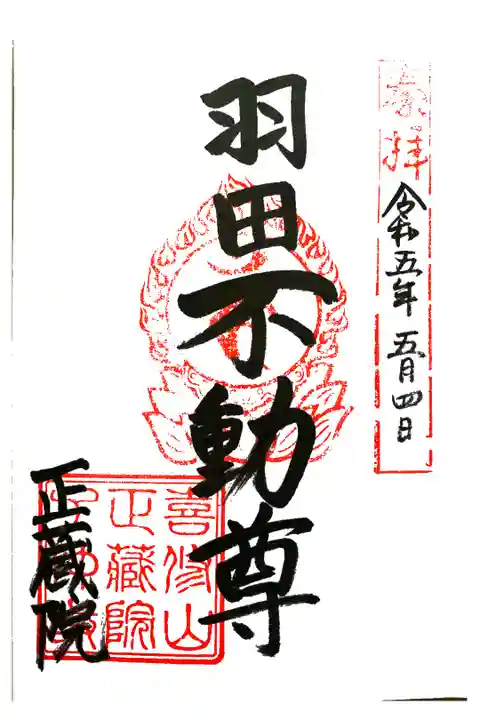 奉拝
令和五年 五月四日
羽田不動尊
正蔵院
喜修山
正蔵院